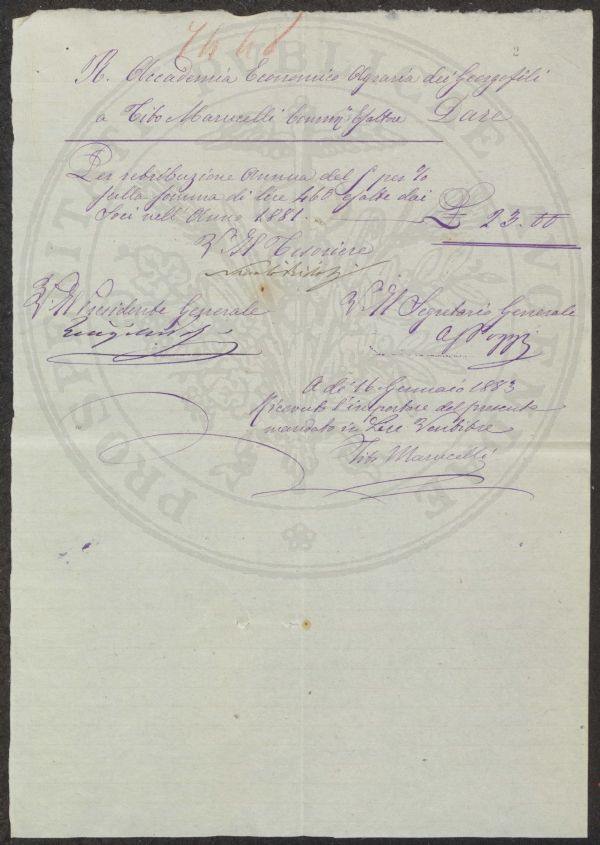 2
R. Accademia Economico Agraria dei Georgofili
a Tito Marucelli Esattore Dare
Per retribuzione Annua del 5 per %
sulla somma di lire 460 esatte dai
Soci nell'Anno 1881. £ 23.00
V. Il Tesoriere
V. Il Presidente Generale
V. Il Segretario Generale
A dì 16 Gennaio 1883
Ricevuto l'importare del presente
mandato in Lire Ventitre
Tito Marucelli
PROSPERITATI PUBLICAE AUGENDAE